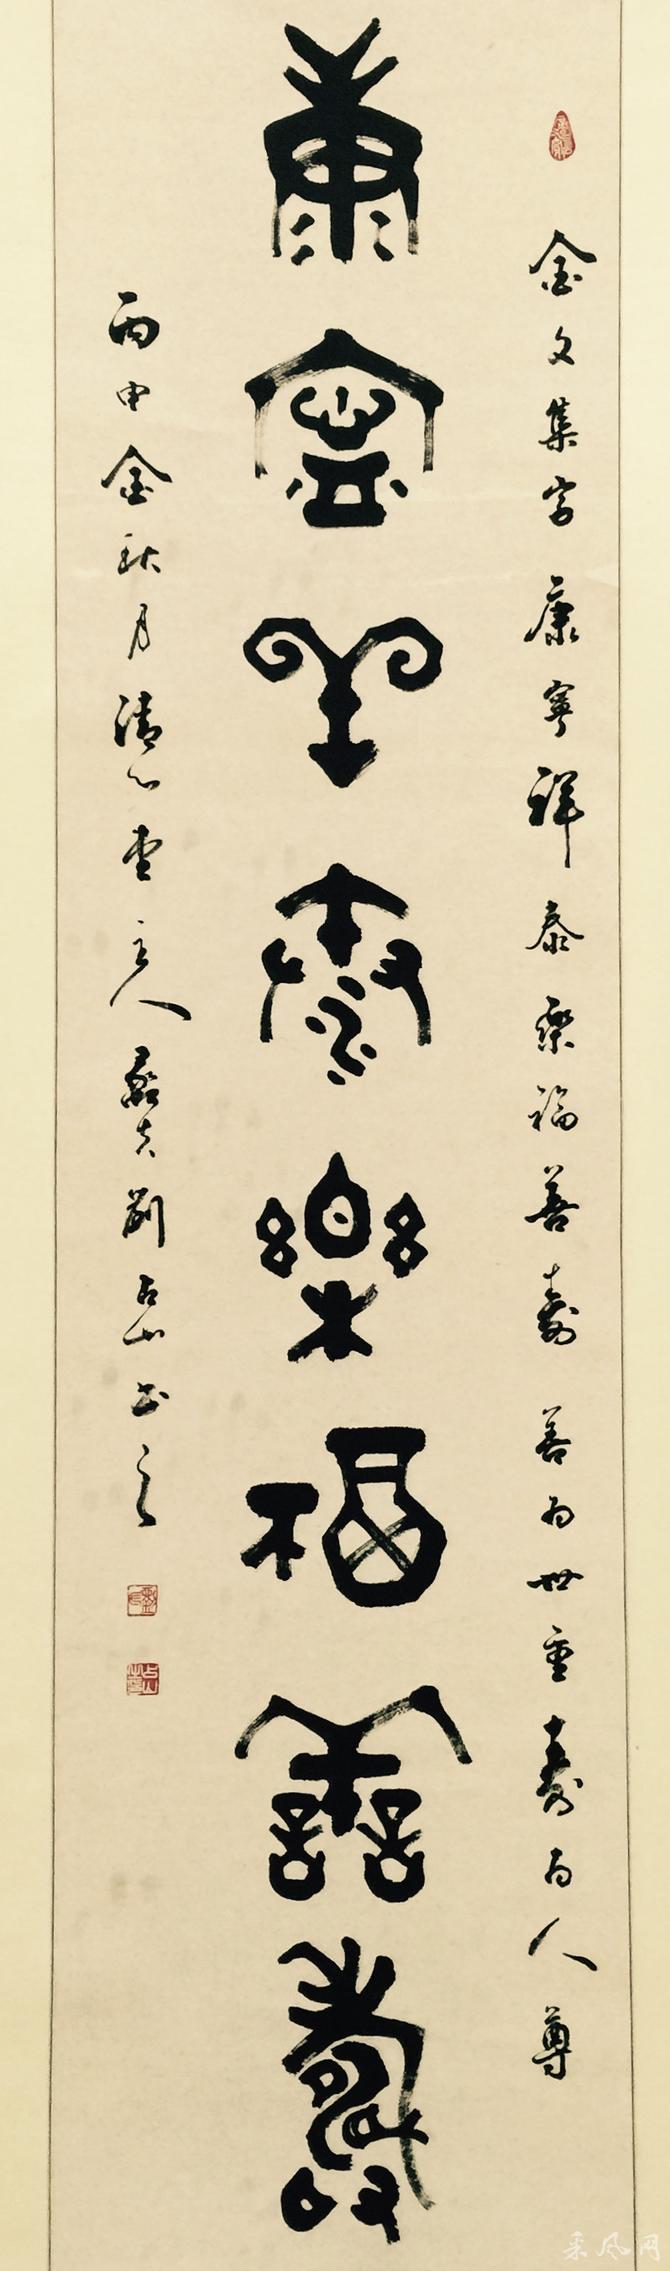 金文集字 康寧祥泰樂福善壽 善為世重壽為人尊
康寧祥泰樂福善壽
丙申金秋月清心堂主人劉占山書之
占山
采风网